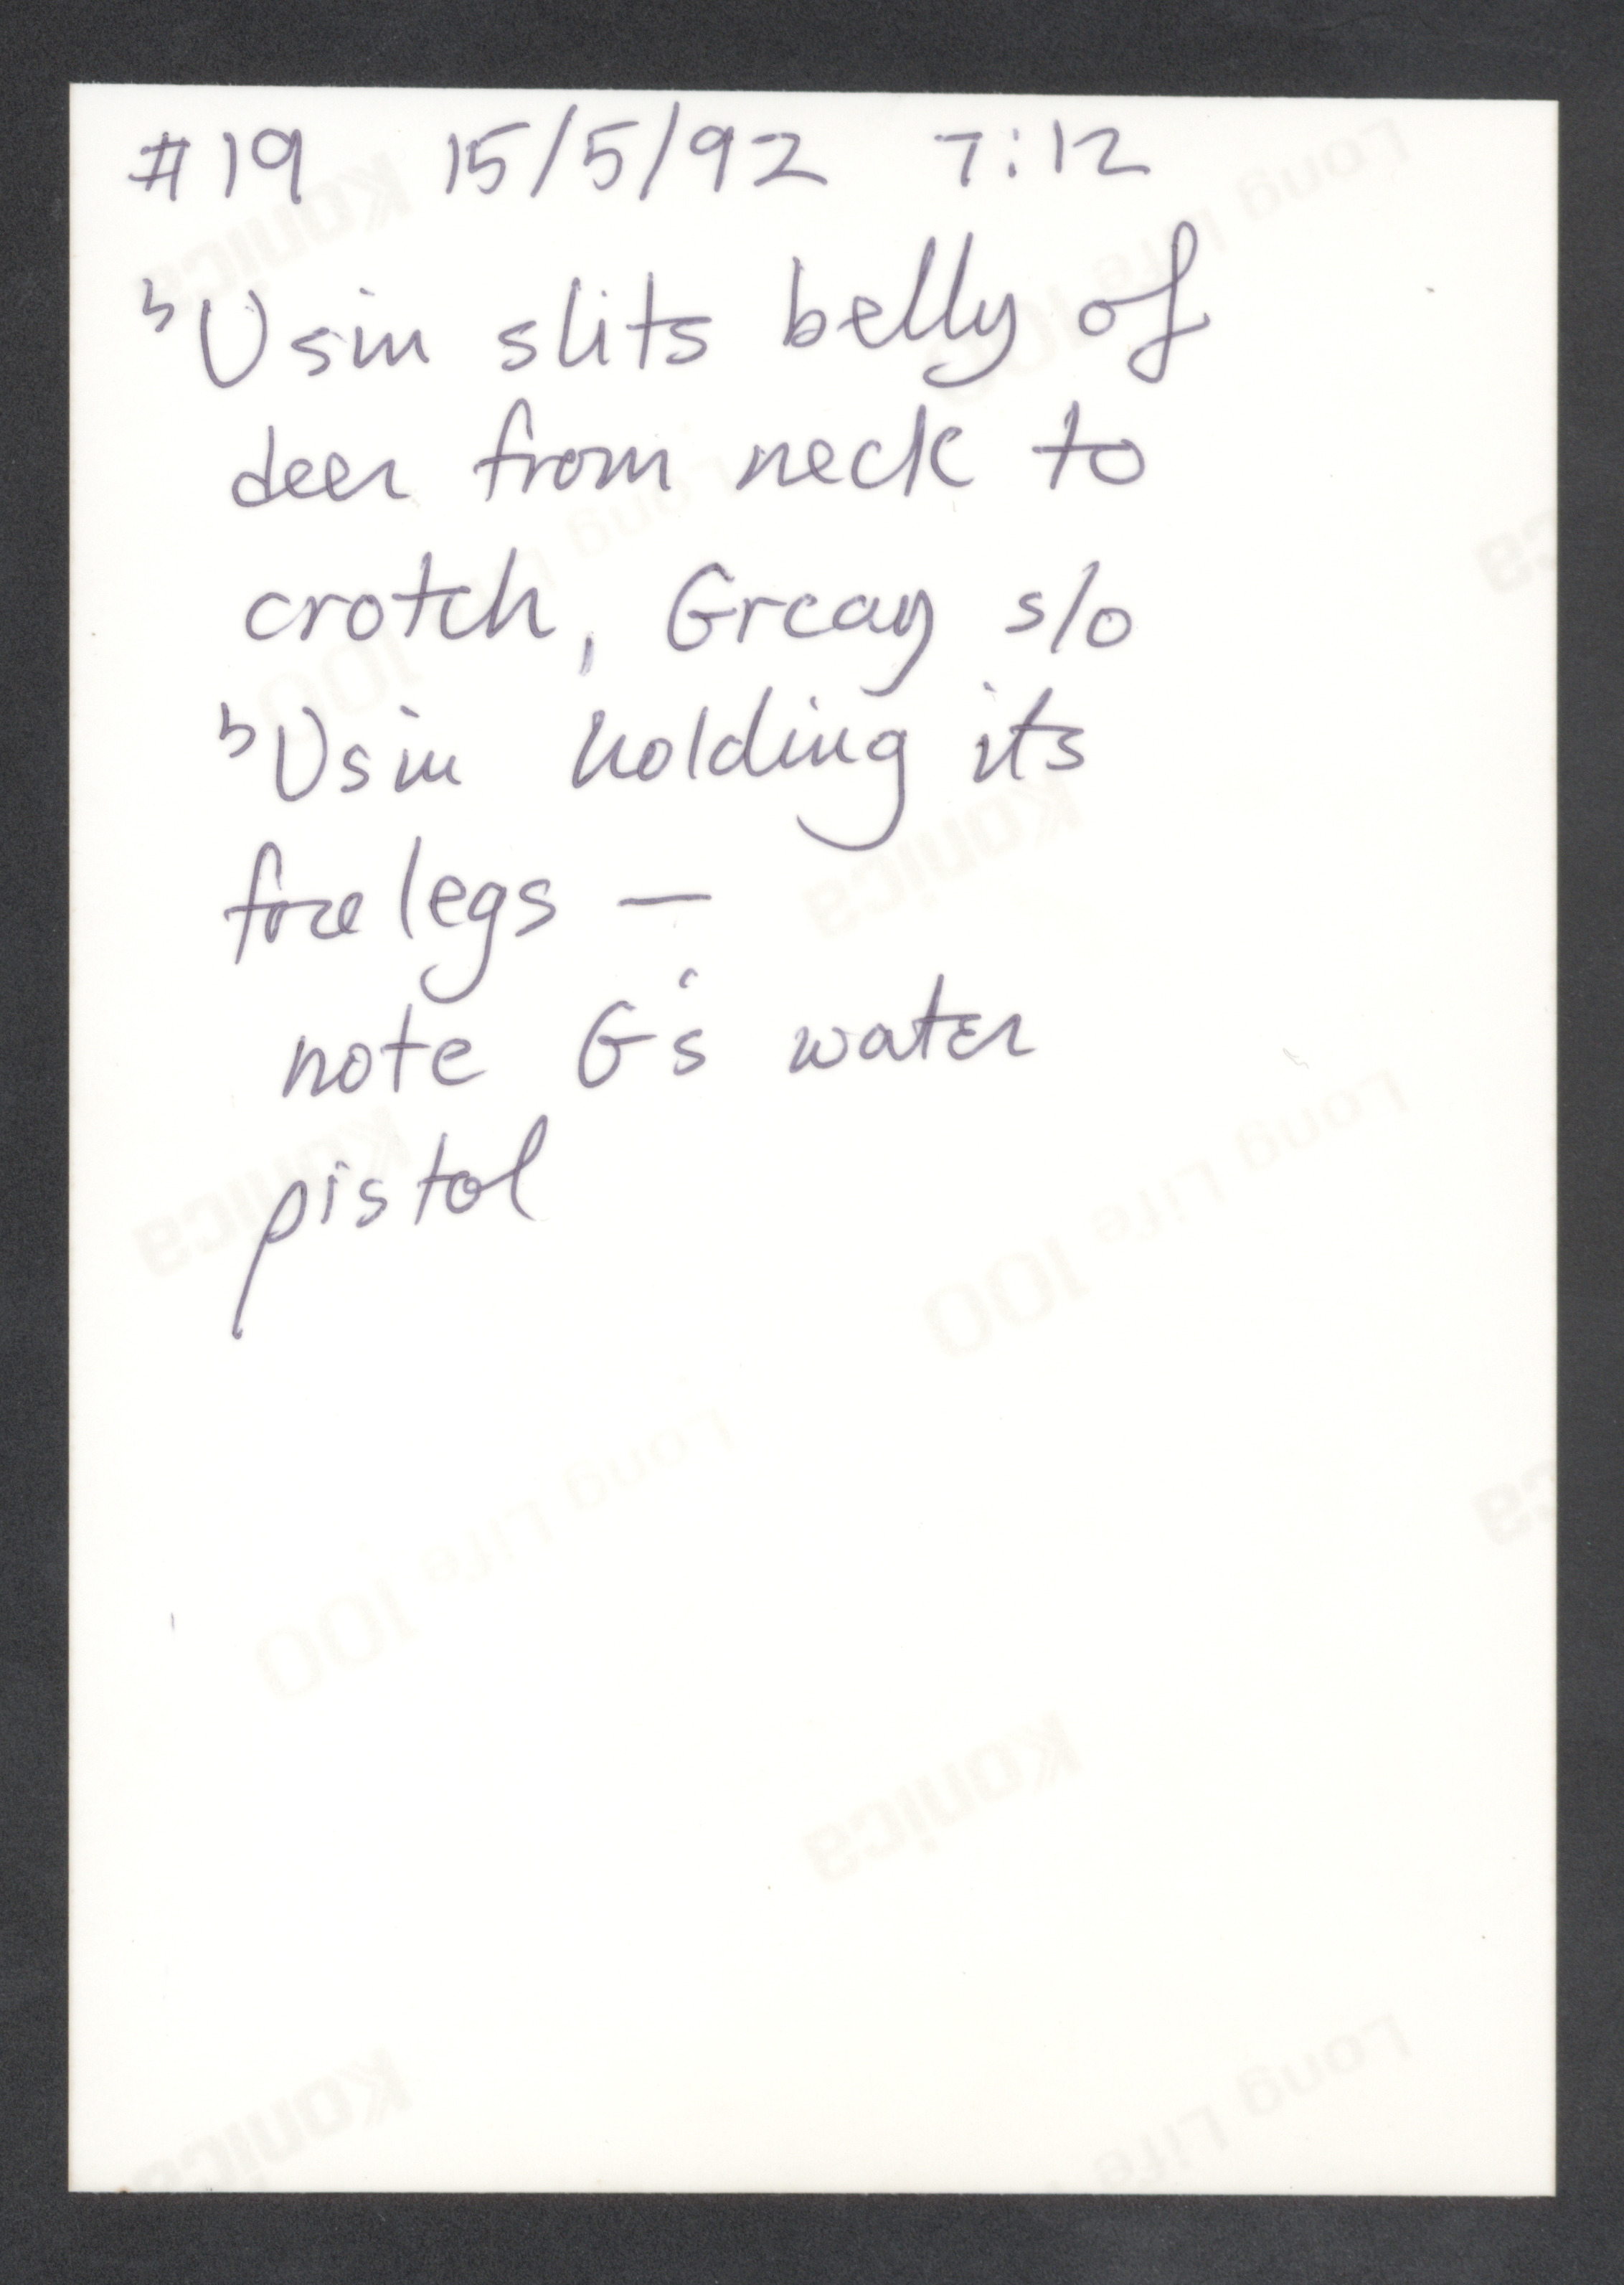 #19 15/5/92 7:12
ᵇUsin slits belly of
deer from neck to
crotch, Greay s/o
ᵇUsin holding its
fore legs —
note G's water
pistol
Konica
Long Life 100
Konica
Long Life 100
Konica
Long Life 100
Konica
Long Life 100
Konica
Konica
Long Life